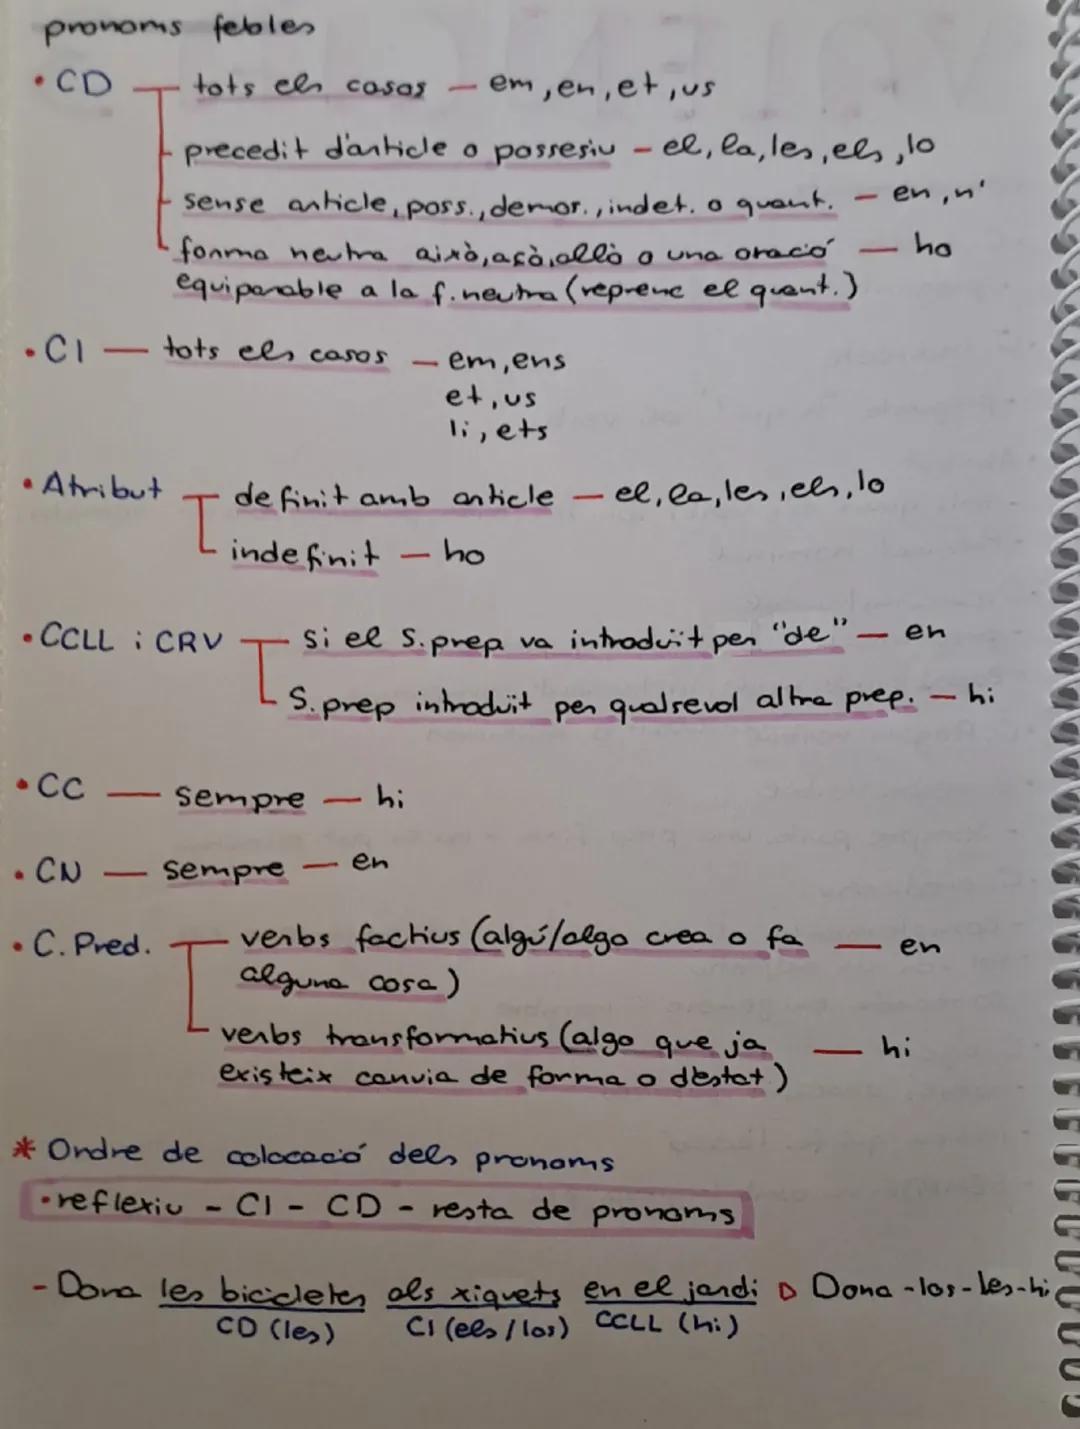 pronoms febles
• CD — tots els casos — em, en, et, us
precedit d'article o possesiu — el, la, les, els, lo
sense article, poss., demos., indet. o quant. — en, n'
forma neutra això, açò, allò o una oració — ho
equiparable a la f. neutra (reprenc el quant.)
• CI — tots els casos — em, ens
et, us
li, ets
• Atribut — definit amb article — el, la, les, els, lo
indefinit — ho
• CCLL i CRV — si el S. prep va introduït per "de" — en
S. prep introduït per qualsevol altra prep. — hi
• CC — sempre — hi
• CN — sempre — en
• C. Pred. — verbs factius (algú/algo crea o fa — en
alguna cosa)
verbs transformatius (algo que ja — hi
existeix canvia de forma o d'estat)
* Ordre de colocació dels pronoms
• reflexiu - CI - CD - resta de pronoms
- Dona les bicicletes als xiquets en el jardi ▷ Dona-los-les-hi
CD (les) CI (els / los) CCLL (hi)